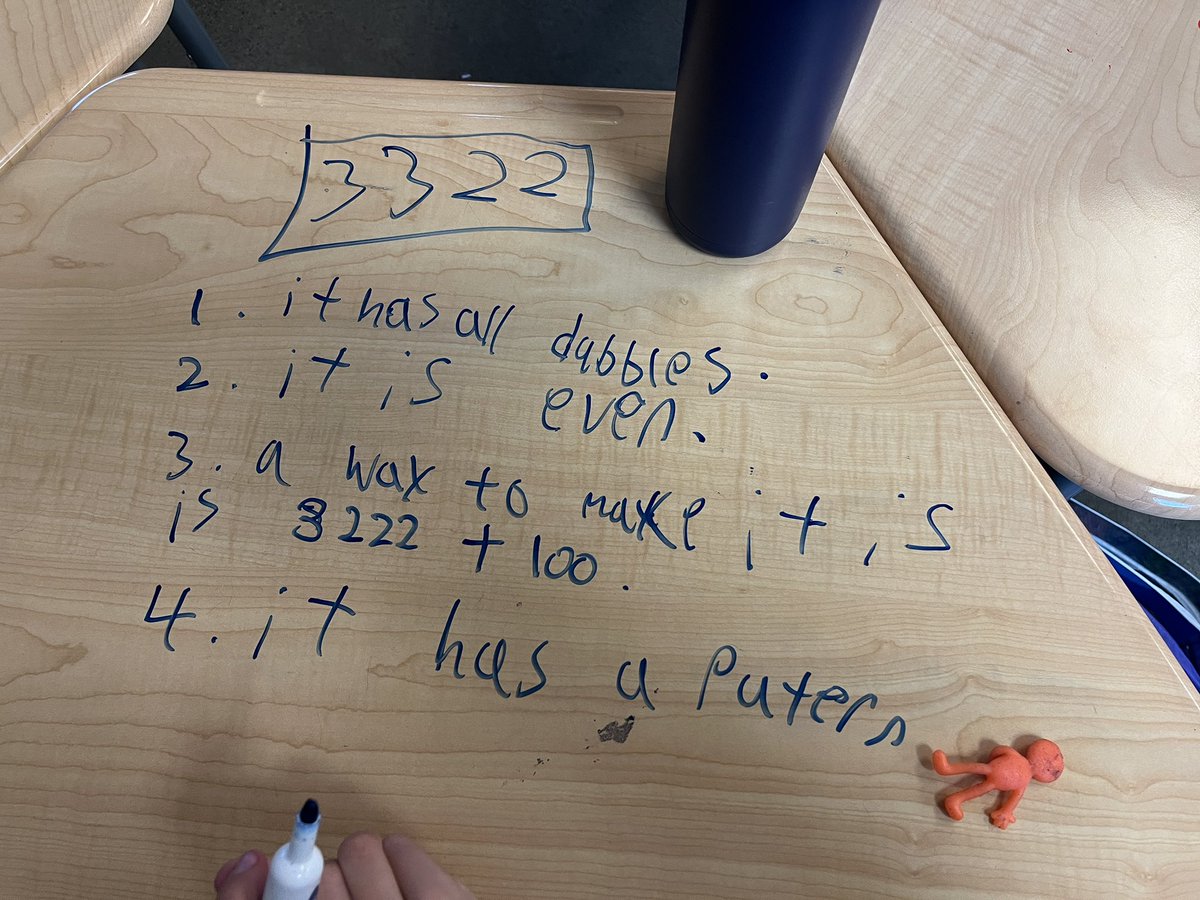 3322
1. it has all dabbles.
2. it is even.
3. a wax to make it is
is 3222 + 100.
4. it has a Patern